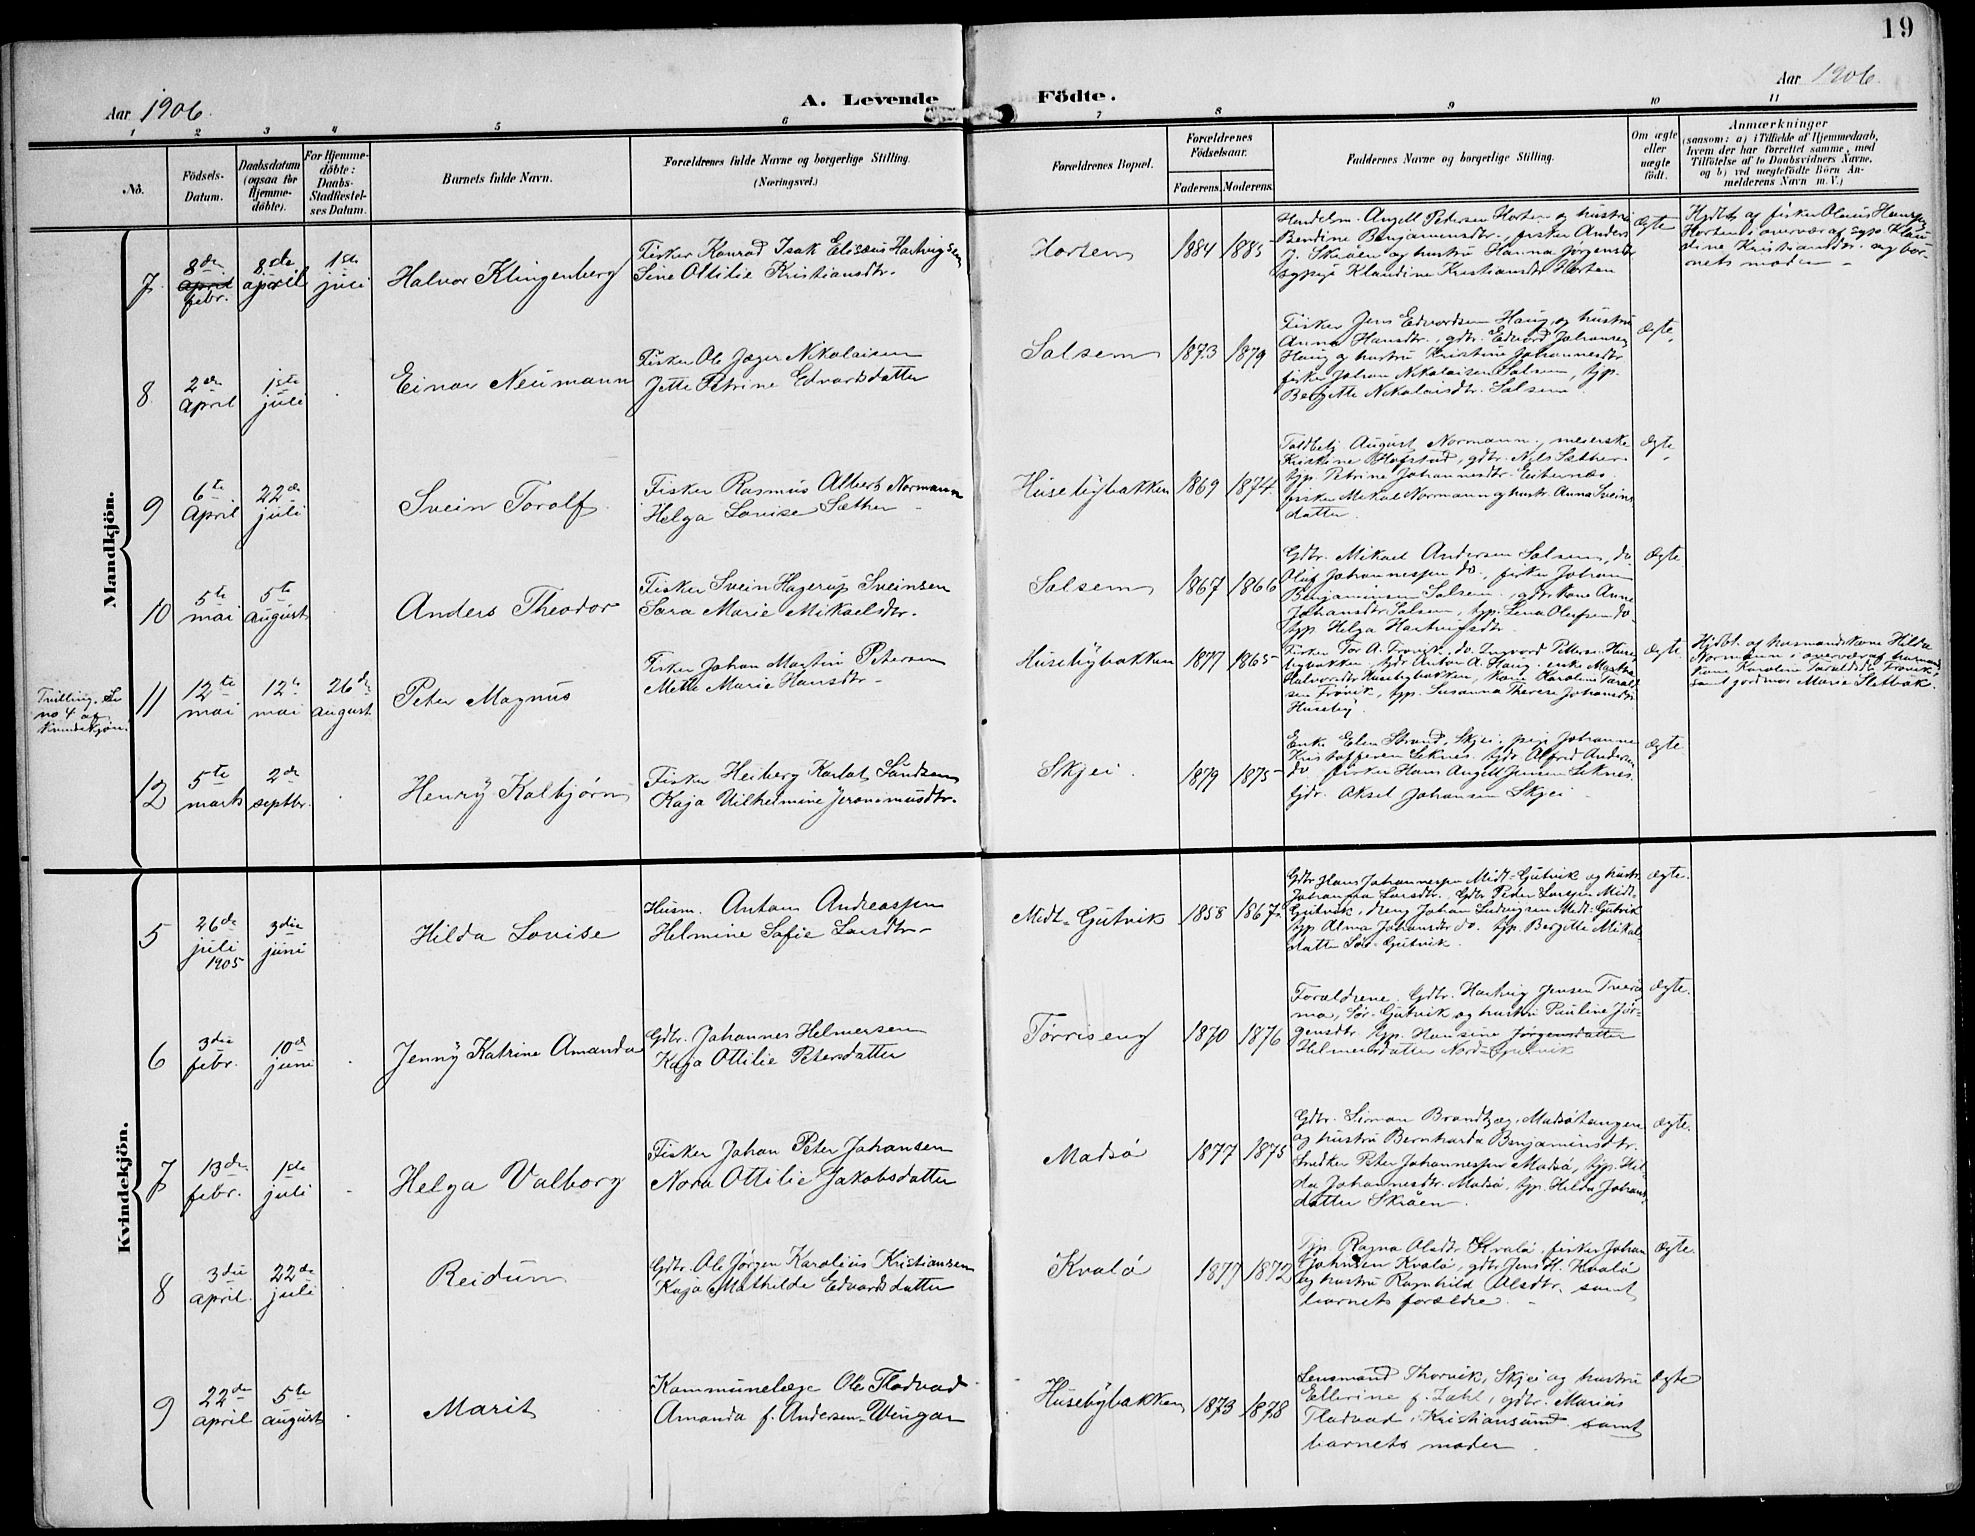 19
Aar 1906.
A. Levende Födte.
Aar 1906.
1 2 3 4 5 6 7 8 9 10 11
No.
Födsels-
Datum.
Daabsdatum
(ogsaa for
Hjemme-
døbte).
For Hjemme-
döbte:
Daabs-
Stadfæstel-
ses Datum.
Barnets fulde Navn.
Forældrenes fulde Navne og borgerlige Stilling.
(Næringsvei.)
Forældrenes Bopæl.
Forældrenes
Födselsaar.
Faderens. Moderens.
Faddernes Navne og borgerlige Stilling.
Om ægte
eller
uægte
födt.
Anmærkninger
(saasom: a) i Tilfælde af Hjemmedaab,
hvem der har forrettet samme, med
Tilföielse af to Daabsvidners Navne,
og b) ved uægtefödte Börn An-
melderens Navn m. V.)
Mandkjön.
7
8de
april
febr.
8de
april
1ste
juli
Halvor Klingenberg
Fisker Konrad Isak Elisæus Hartvigsen
Sine Ottilie Kristiansdtr.
Horten
1884 1885
Handelsm. Angell Pedersen Horten og hustru
Bendine Benjaminsdtr., fisker Anders
J. Skraen og hustru Hanna Jørgensdtr
sypige Klaudine Kristiansdtr Horten
Ægte
Hjdbt af fisker Olaus Hansen
Horten i overvær af syp. Klau-
dine Kristiansdtr. og bar-
nets moder.
8.
2den
april
1ste
juli
Einar Neumann
Fisker Ole Jæger Nikolaisen
Jette Petrine Edvardsdatter
Salsem
1873 1879
Fisker Jens Edvardsen Haug og hustru
Anna Hansdtr., gdbr. Edvard Johansen
Haug og hustru Kristine Johannesdtr
fisker Johan Nikolaisen Salsem, tjp.
Bergitte Nikolaisdtr. Salsem.
Ægte.
9
6te
April
22de
juli
Svein Torolf.
Fisker Rasmus Albert Normann
Helga Lovise Sæther
Husebybakken
1869 1874.
Toldbetj. August Normann, meierske
Kristine Hofstad, gdbr. Nils Sæther
tjp. Petrine Johannesdtr.
fisker Mekal Normann og hustr. Anna Sveins
datter.
Ægte.
10
5te
mai
5te
August
Anders Theodor
Fisker Svein Hagerup Sveinsen
Sara Marie Mikaelsdtr.
Salsem
1867 1866
Gdbr. Mikael Andersen Salsem, do
Oluf Johannessen do. fisker Johan
Benjaminsen Salsem, gdbr. kone Anne
Johansdtr Salsem, tjp. Lena Olufsen do.
tjp Helga Hartvigsdtr.
Ægte
Trilling. Se
no 4 af
kvindekjøn.
11
12te
mai
12te
mai
26de
August
Peter Magnus
Fisker Johan Martin Petersen
Mette Marie Hansdtr.
Husebybakken
1877 1865
Fisker Tor A. do. Ingvard Petters. Huse-
bybakken, gdr Anton A. Haug, enke
Halvorsdtr Husebybakken, kone Karoline
tjp. Susanna Therese Johansdtr
Huseby.
Ægte
Hjdbt. af husmandskone Hilda
Normann i overvær af husmands
kone Karoline
samt gjordmor Marie Sletbak.
12
5te
marts
2den
septbr.
Henry Kolbjørn
Fisker Heiberg Karlot Sandsen
Kaja Vilhelmine Jeronimusdtr.
Skjei.
1879 1875
Enke Elen Strand, Skjei, pige Johanna
Kristoffersen Leknes, tjdr Alfred Andersen
do, fisker Hans Angell Jensen Leknes.
tjdr. Aksel Johansen Skjei
Ægte
Kvindekjön.
5
26de
juli
1905
3die
juni
Hilda Lovise
Husm. Anton Andreassen
Helmine Sofie Larsdtr.
Midt-Gutvik
1858 1867.
Gdbr Hans Johannessen Midt-Gutvik og hustr.
Johanna Larsdtr. Gdbr Peder Larsen Midt-
Gutvik, dreng Johan Ludvigsen Midt-Gutvik
tjp. Alma Johansdtr do. tjp. Bergitte Mikal-
datter Sør-Gutvik.
Ægte.
6
3die
febr.
10de
juni
Jenny Katrine Amanda
Gdbr. Johannes Helmersen
Kaja Ottilie Petersdatter
Tørriseng
1870 1876
Forældrene. Gdbr. Hartvig Jensen
Sør-Gutvik og hustru Pauline Jør-
gensdtr. tjp. Hansine Jørgensdatter
Helmersdatter Nord-Gutvik
Ægte.
7
13de
febr.
1ste
juli
Helga Valborg
Fisker Johan Peter Johansen
Nora Ottilie Jakobsdatter
Madsø
1877 1875
Gdbr. Simon Brandtzæg, Madsøtangen
og hustru Bernharda Benjaminsdtr.
Snedker Peter Johannessen Madsø, tjp. Hil-
da Johannesdtr. Madsø, tjp. Hilda Johans-
datter Skråen.
Ægte.
8
3die
april.
22de
juli
Reidun
Gdbr. Ole Jørgen Karolius Kristiansen
Kaja Mathilde Edvardsdatter
Kvalø
1877 1872
Tjp. Ragna Olsdtr Kvalø, fisker Johan
Johnsen Kvalø, gdbr Jens H. Kvalø
og hustru Ragnhild Olsdtr. samt
barnets forældre.
Ægte.
9
22de
april
5te
august
Marit
Kommunelæge Ole Flodvad
Amanda f. Andersen-Wingar
Husebybakken
1873 1878
Lensmand Thorvik, Skjei og hustru
Ellerine f. Dahl, gdbr. Marius
Flodvad, Kristiansund samt
barnets moder.
Ægte